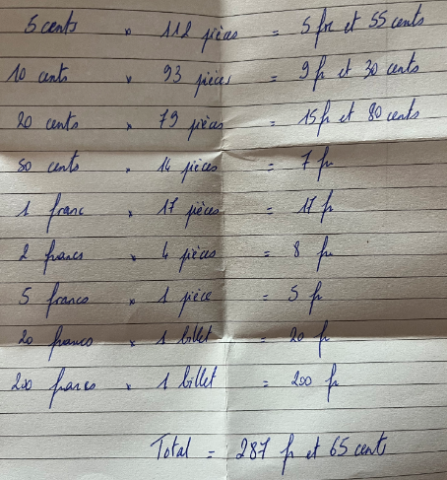 5 cents x 111 pièces = 5 frc et 55 cents
10 cents x 93 pièces = 9 fr et 30 cents
20 cents x 79 pièces = 15 fr et 80 cents
50 cents x 14 pièces = 7 fr
1 franc x 17 pièces = 17 fr
2 francs x 4 pièces = 8 fr
5 francs x 1 pièce = 5 fr
20 francs x 1 billet = 20 fr
200 francs x 1 billet = 200 fr
Total = 287 fr et 65 cents